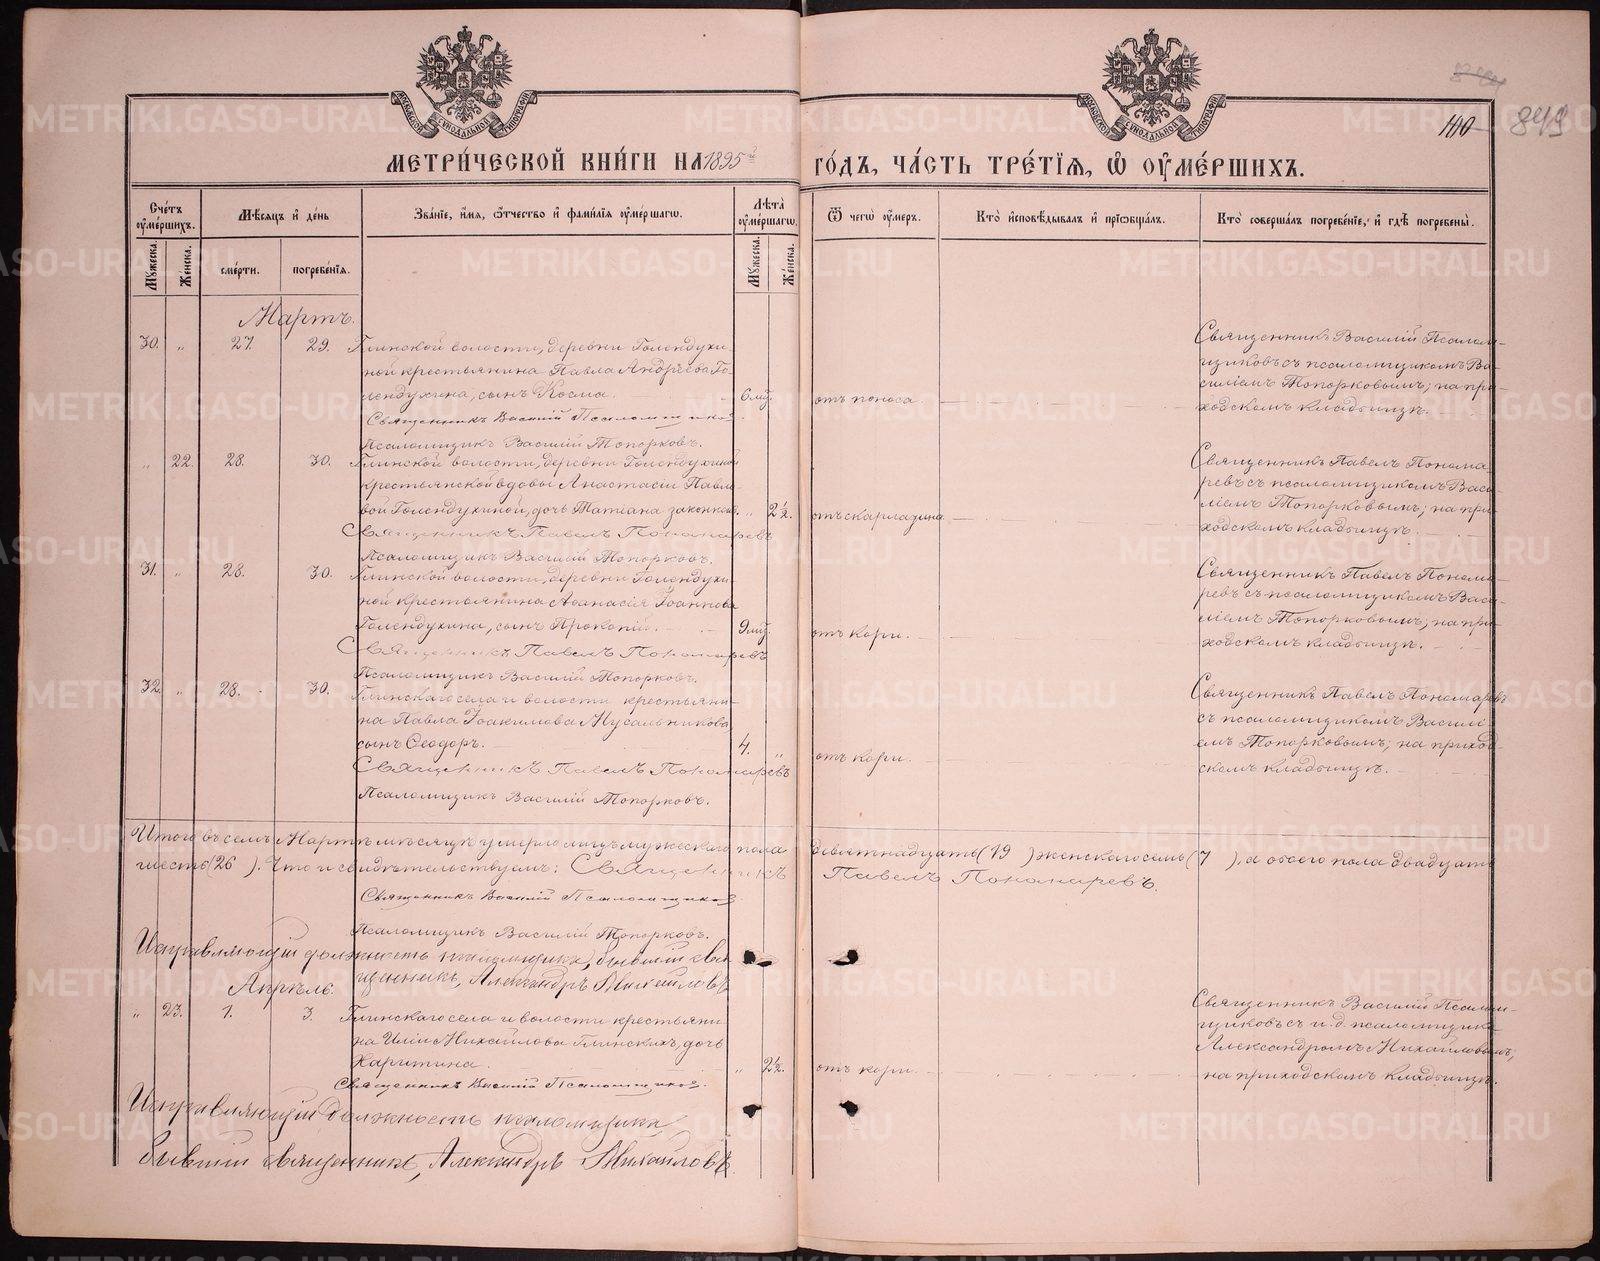 МОСКОВСКОЙ СѴНОДАЛЬНОЙ ТИПОГРАФІИ
МОСКОВСКОЙ СѴНОДАЛЬНОЙ ТИПОГРАФІИ
110
849
МЕТРИ́ЧЕСКОЙ КНИ́ГИ НА 1895й
ГО́ДЪ, ЧА́СТЬ ТРЕ́ТІѦ, Ѡ ОУМЕ́РШИХЪ.
Сче́тъ оуме́ршихъ.
Мѣ́сѧцъ и де́нь
Зва́нїе, и́мѧ, ѻ́тчество и фами́лїѧ оуме́ршагѡ.
Лѣ́та оуме́ршагѡ.
Ѿ чегѡ̀ оу́меръ.
Кто̀ исповѣ́дывалъ и прїѡбща́лъ.
Кто̀ соверша́лъ погребе́нїе, и гдѣ̀ погребены̀.
Мꙋ́жеска.
Же́нска.
сме́рти.
погребе́нїѧ.
Мꙋ́жеска.
Же́нска.
Мартъ.
30. „ 27. 29. Глинской волости, деревни Голендухи-
ной крестьянина Павла Андреева Го-
лендухина, сынъ Косма. 6 мц. отъ поноса
Священникъ Василій Псаломщиковъ
Псаломщикъ Василій Топорковъ.
Священникъ Василій Псалом-
щиковъ съ псаломщикомъ Ва-
силіемъ Топорковымъ; на при-
ходскомъ кладбищѣ.
„ 22. 28. 30. Глинской волости, деревни Голендухиной
крестьянской вдовы Анастасіи Павло-
вой Голендухиной, дочь Татіана законная. „ 2½. отъ скарлатина.
Священникъ Павелъ Пономаревъ
Псаломщикъ Василій Топорковъ.
Священникъ Павелъ Понома-
ревъ съ псаломщикомъ Васи-
ліемъ Топорковымъ; на при-
ходскомъ кладбищѣ.
31. „ 28. 30. Глинской волости, деревни Голендухи-
ной крестьянина Аѳанасія Іоаннова
Голендухина, сынъ Прокопій. 9 мц. отъ кори.
Священникъ Павелъ Пономаревъ
Псаломщикъ Василій Топорковъ.
Священникъ Павелъ Понома-
ревъ съ псаломщикомъ Васи-
ліемъ Топорковымъ; на при-
ходскомъ кладбищѣ.
32. „ 28. 30. Глинскаго села и волости крестьяни-
на Павла Іоакимова Мусальникова
сынъ Ѳеодоръ. 4. „ отъ кори.
Священникъ Павелъ Пономаревъ
Псаломщикъ Василій Топорковъ.
Священникъ Павелъ Пономаревъ
съ псаломщикомъ Василі-
емъ Топорковымъ; на приход-
скомъ кладбищѣ.
Итого въ семъ Мартѣ мѣсяцѣ умерло лицъ мужескаго пола девятнадцать (19) женскаго семь (7), а обоего пола двадцать
шесть (26). Что и свидѣтельствуемъ: Священникъ Павелъ Пономаревъ.
Священникъ Василій Псаломщиковъ
Псаломщикъ Василій Топорковъ.
Исправляющій должность псаломщика, бывшій свя-
щенникъ, Александръ Михайловъ
Апрѣль.
„ 23. 1. 3. Глинскаго села и волости крестьяни-
на Иліи Михайлова Глинскихъ, дочь
Харитина. „ 2½. отъ кори.
Священникъ Василій Псаломщиковъ.
Священникъ Василій Псалом-
щиковъ съ и. д. псаломщика
Александромъ Михайловымъ;
на приходскомъ кладбищѣ.
Исправляющій должность псаломщика
бывшій священникъ, Александръ Михайловъ.
METRIKI.GASO-URAL.RU